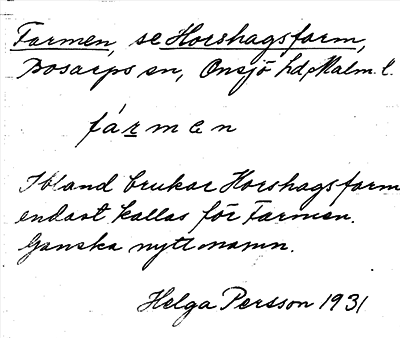 Farmen, se Horshagsfarm,
Bosarps sn, Onsjö hd, Malm. l.
fármen
Ibland brukar Horshagsfarm
endast kallas för Farmen.
Ganska nytt namn.
Helga Persson 1931